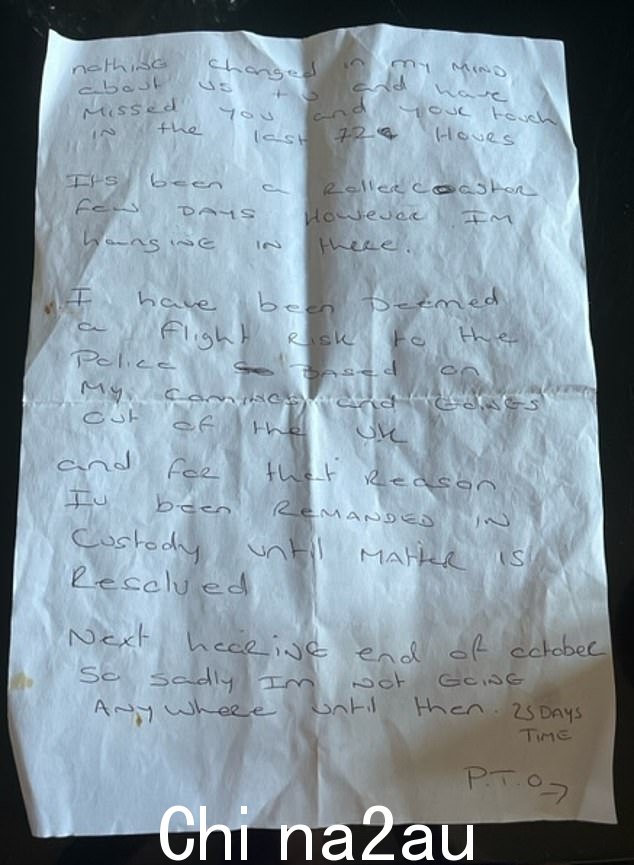 nothing changed in my MIND
about us + U and have
Missed you and your touch
in the last 72 Hours
Its been a Rollercoaster
few DAYS However IM
hanging in there.
I have been Deemed
a flight Risk to the
Police BASED on
My Comings and Goings
out of the UK
and for that Reason
Iv been REMANDED IN
Custody until MATTER IS
Resolved
Next hearing end of october
So sadly Im NOT GOING
ANYwhere until then. 25 DAYS
TIME
P.T.O →
Chi na2au